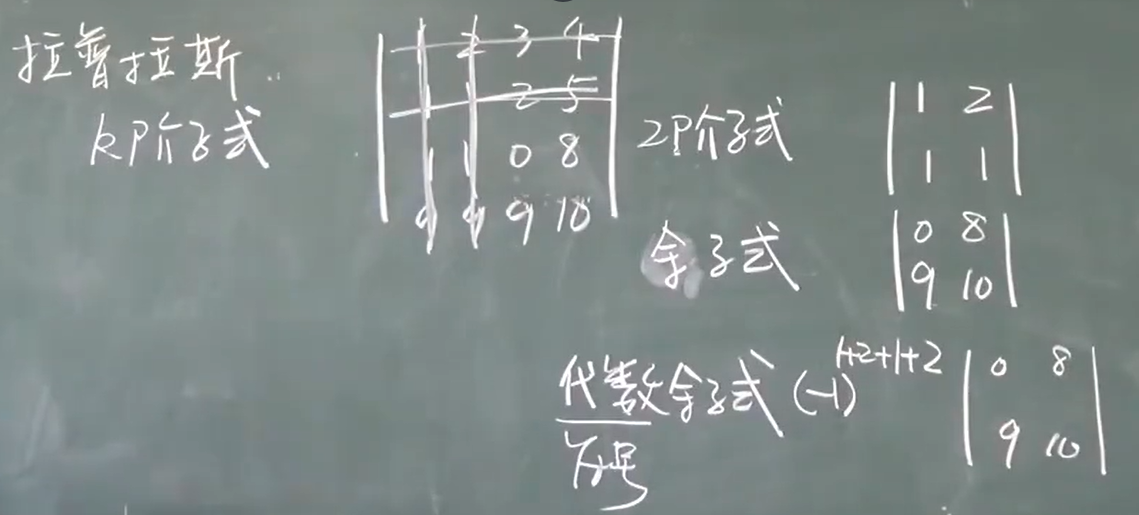 拉普拉斯
k阶子式
1 2 3 4
1 1 2 5
1 1 0 8
9 9 9 10
2阶子式
1 2
1 1
余子式
0 8
9 10
代数余子式 (-1)^{1+2+1+2}
0 8
9 10
符号